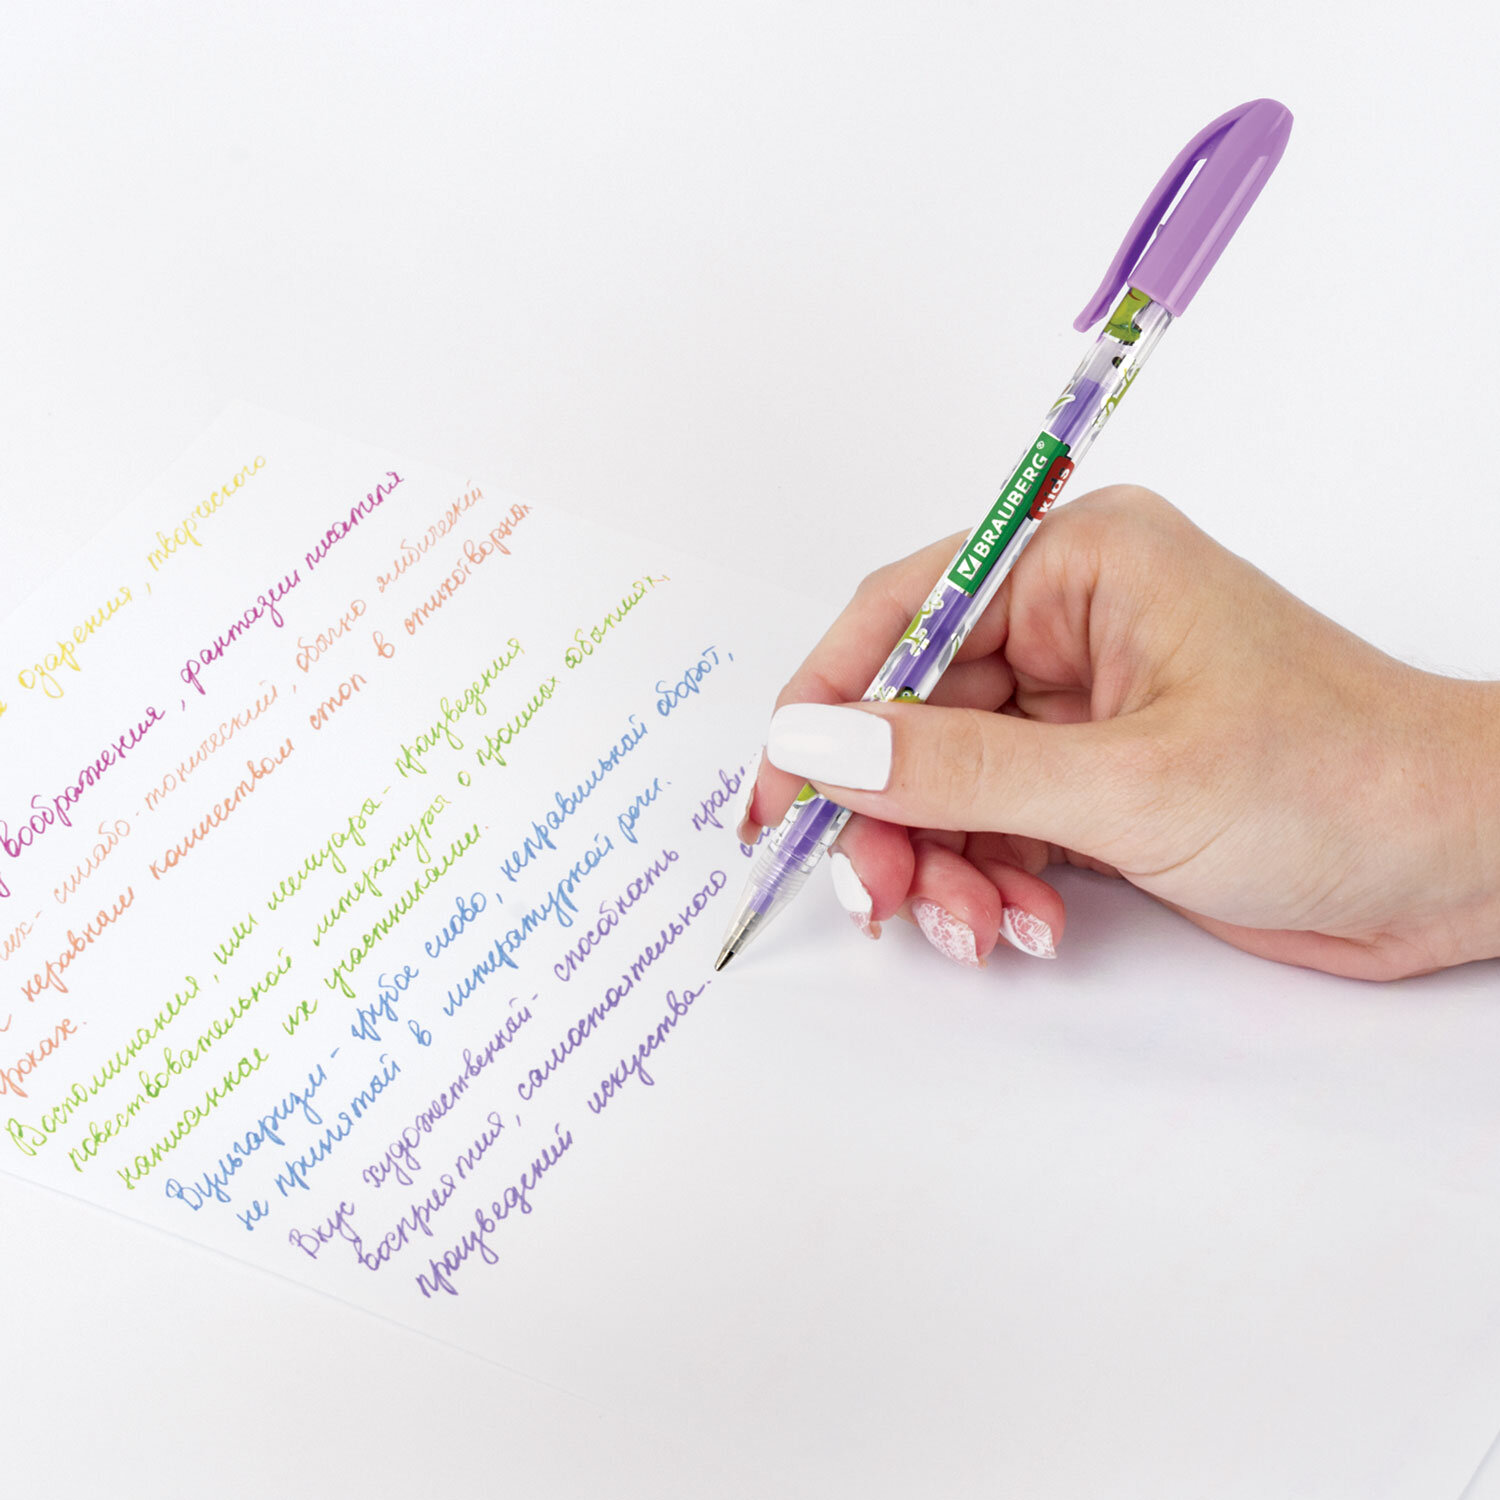 озарения, творческого
воображения, фантазии писателя
слабо-тонический, обычно ямбический
с неравным количеством стоп в стихотворных
строках.
Воспоминания, или мемуары - произведения
повествовательной литературы о прошлых событиях,
написанное их участниками.
Вульгаризм - грубое слово, неправильный оборот,
не принятый в литературной речи.
Вкус художественный - способность
восприятия, самостоятельного
произведений искусства.
BRAUBERG®
kids